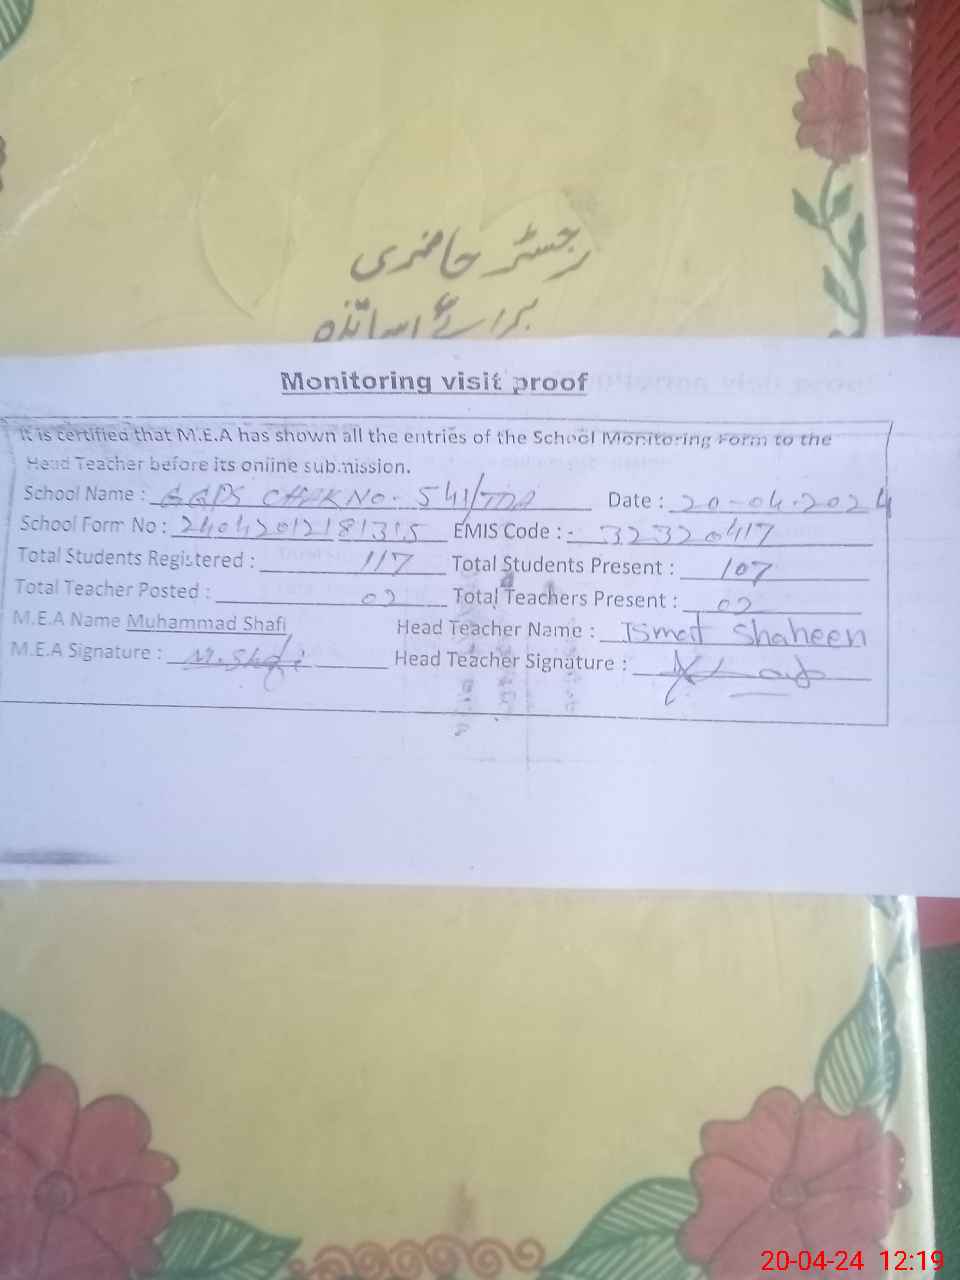 رجسٹر حاضری
برائے اساتذہ
Monitoring visit proof
It is certified that M.E.A has shown all the entries of the School Monitoring Form to the
Head Teacher before its online submission.
School Name : GGPS CHAK NO. 541/TDA Date : 20-04-2024
School Form No : 24042012181315 EMIS Code : - 32320417
Total Students Registered : 117 Total Students Present : 107
Total Teacher Posted : 02 Total Teachers Present : 02
M.E.A Name Muhammad Shafi Head Teacher Name : Ismat Shaheen
M.E.A Signature : M.Shafi Head Teacher Signature :
20-04-24 12:19